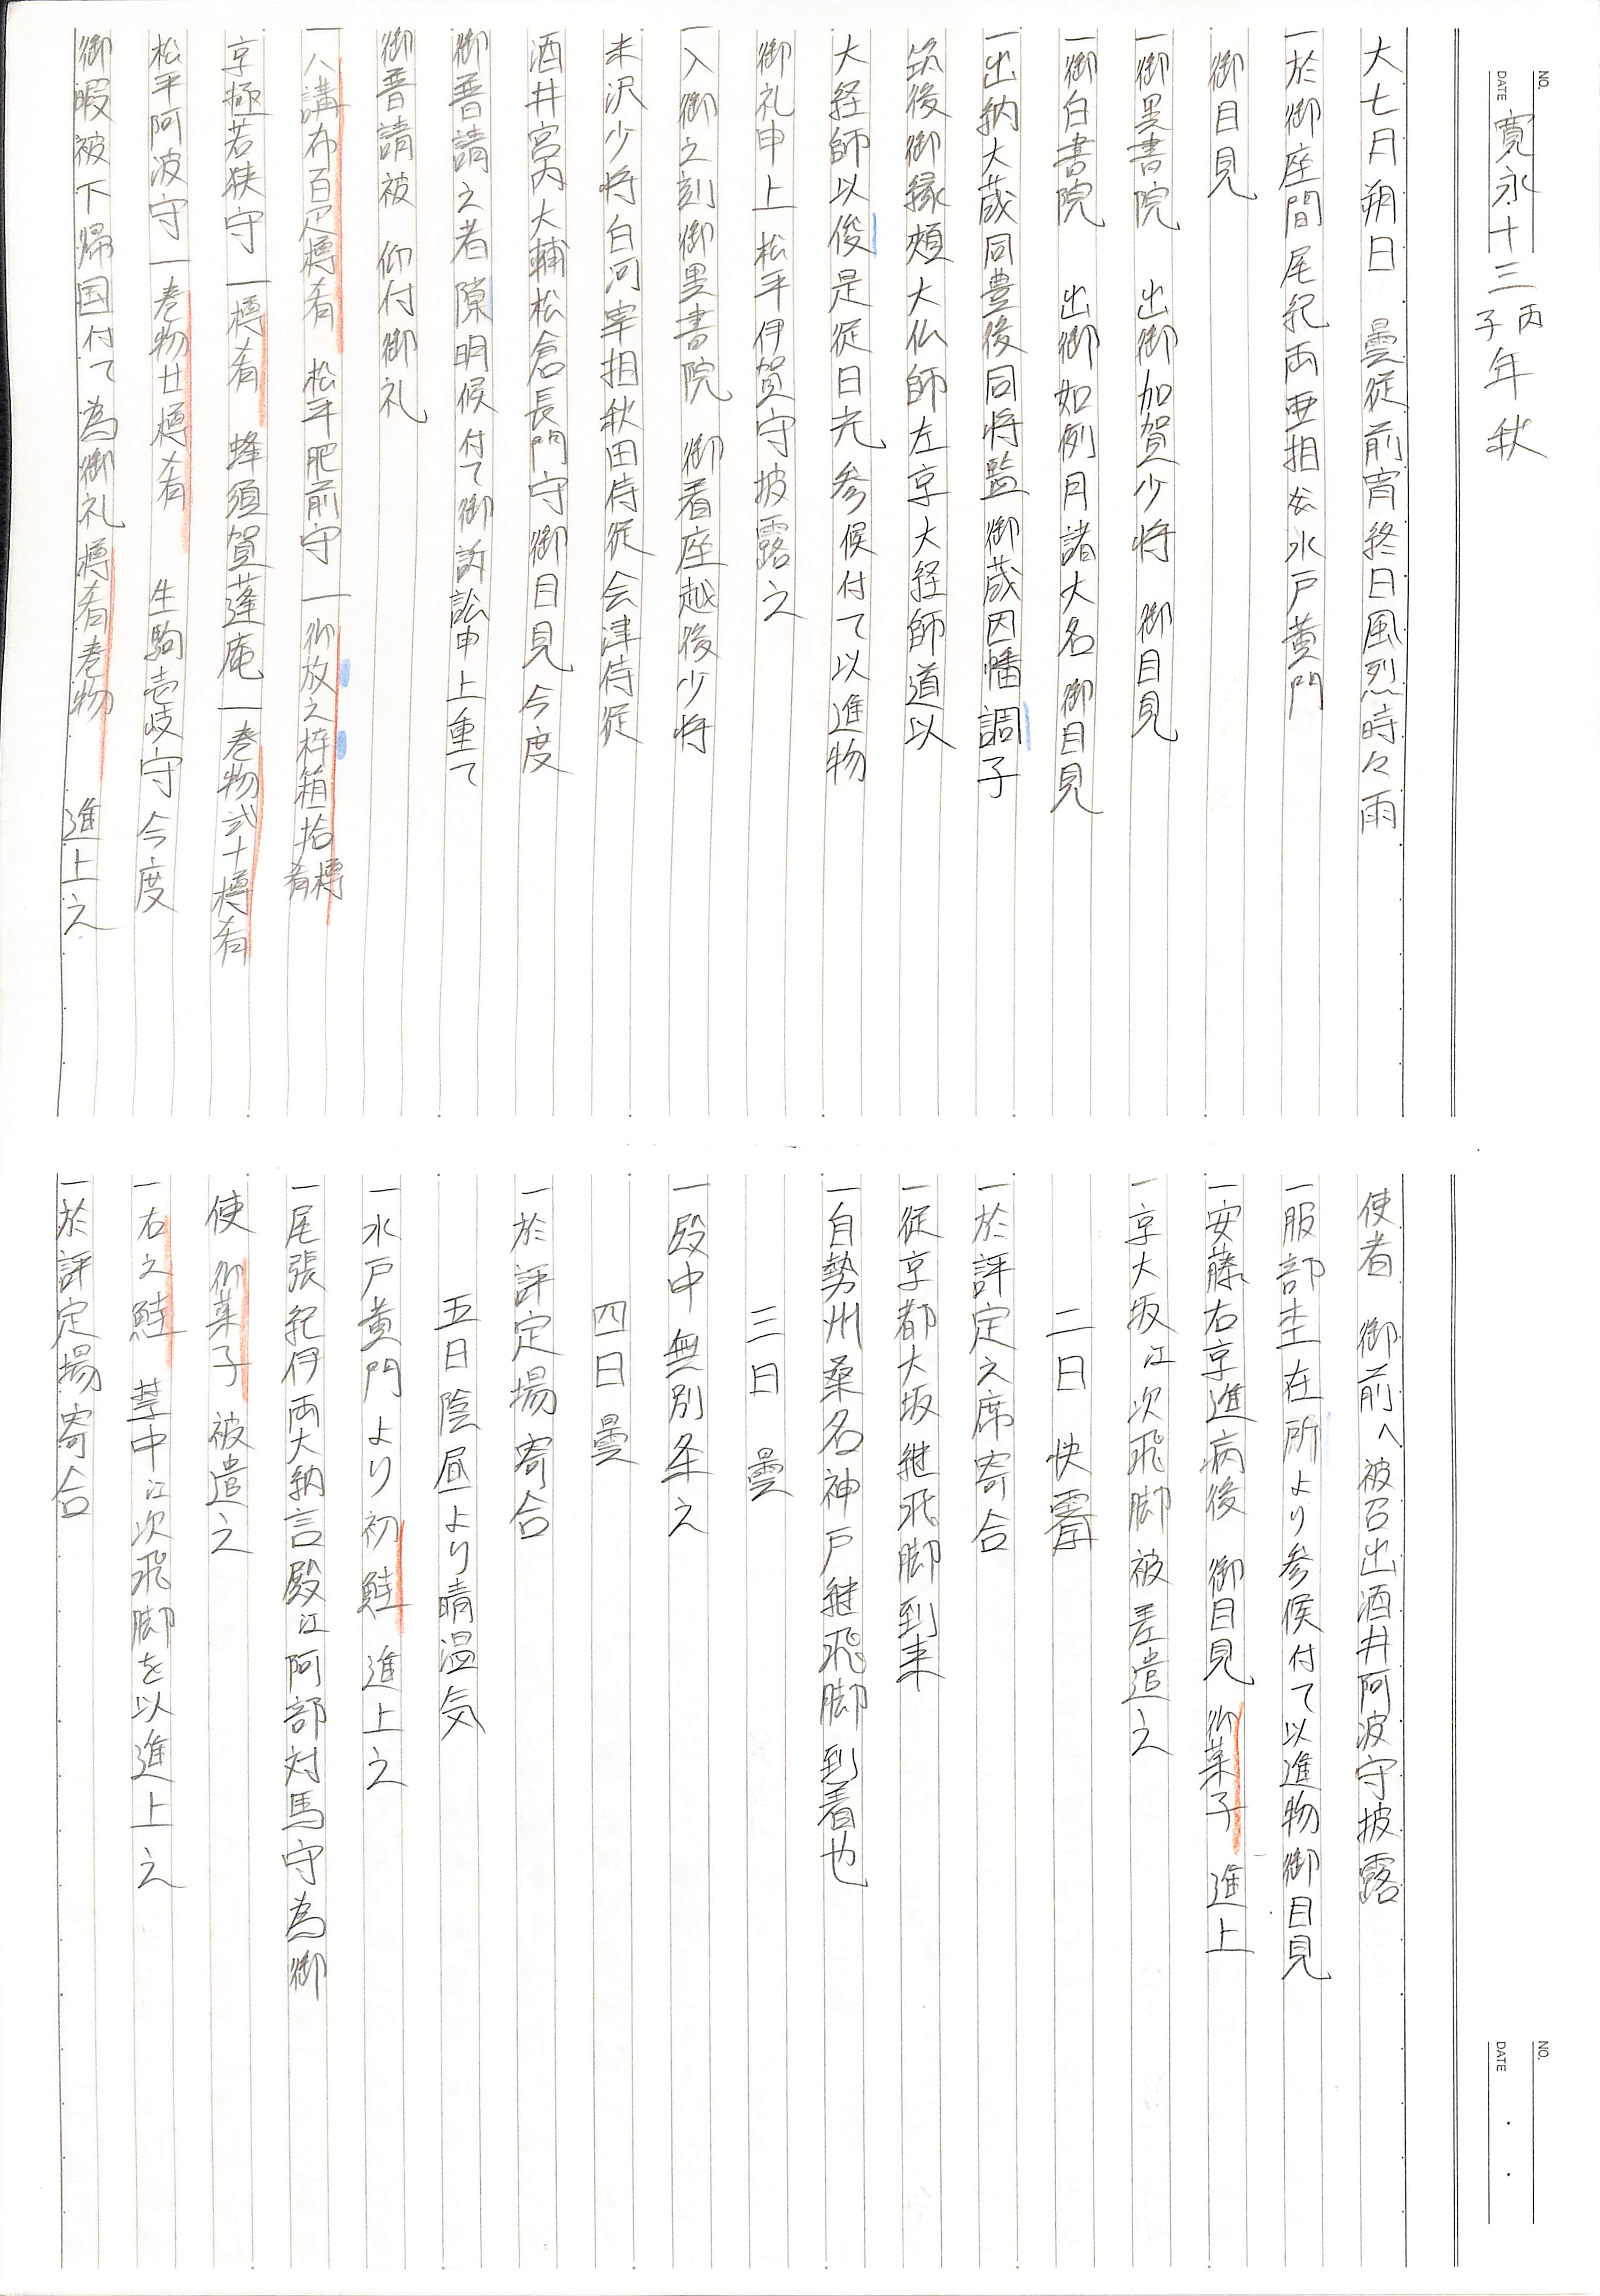 NO.
DATE 寛永十三丙子年秋
大七月朔日　曇従前宵終日風烈時々雨
一於御座間尾紀両亜相幷水戸黄門
御目見
一御黒書院　出御加賀少将　御目見
一御白書院　出御如例月諸大名御目見
一出納大蔵同豊後同将監御蔵因幡調子
筑後御縁頬大仏師左京大経師道以
大経師以俊是従日光参候付て以進物
御礼申上松平伊賀守披露之
一入御之刻御黒書院　御着座越後少将
米沢少将白河宰相秋田侍従会津侍従
酒井宮内大輔松倉長門守御目見今度
御普請之者隙明候付て御訴訟申上重て
御普請被　仰付御礼
一八講布百疋樽肴　松平肥前守　一御放之梓箱一拾樽肴
京極若狭守　一樽肴　蜂須賀蓬庵　一巻物弐十樽肴
松平阿波守　一巻物廿樽肴　生駒壱岐守今度
御暇被下帰国付て為御礼樽肴巻物　進上之
NO.
DATE
使者　御前へ被召出酒井阿波守披露
一服部杢在所より参候付て以進物御目見
一安藤右京進病後　御目見　御菓子　進上
一京大坂江次飛脚被差遣之
二日　快霽
一於評定之席寄合
一従京都大坂継飛脚到来
一自勢州桑名神戸継飛脚到着也
三日　曇
一殿中無別条之
四日　曇
一於評定場寄合
五日陰昼より晴温気
一水戸黄門より初鮭　進上之
一尾張紀伊両大納言殿江阿部対馬守為御
使　御菓子　被遣之
一右之鮭　禁中江次飛脚を以進上之
一於評定場寄合